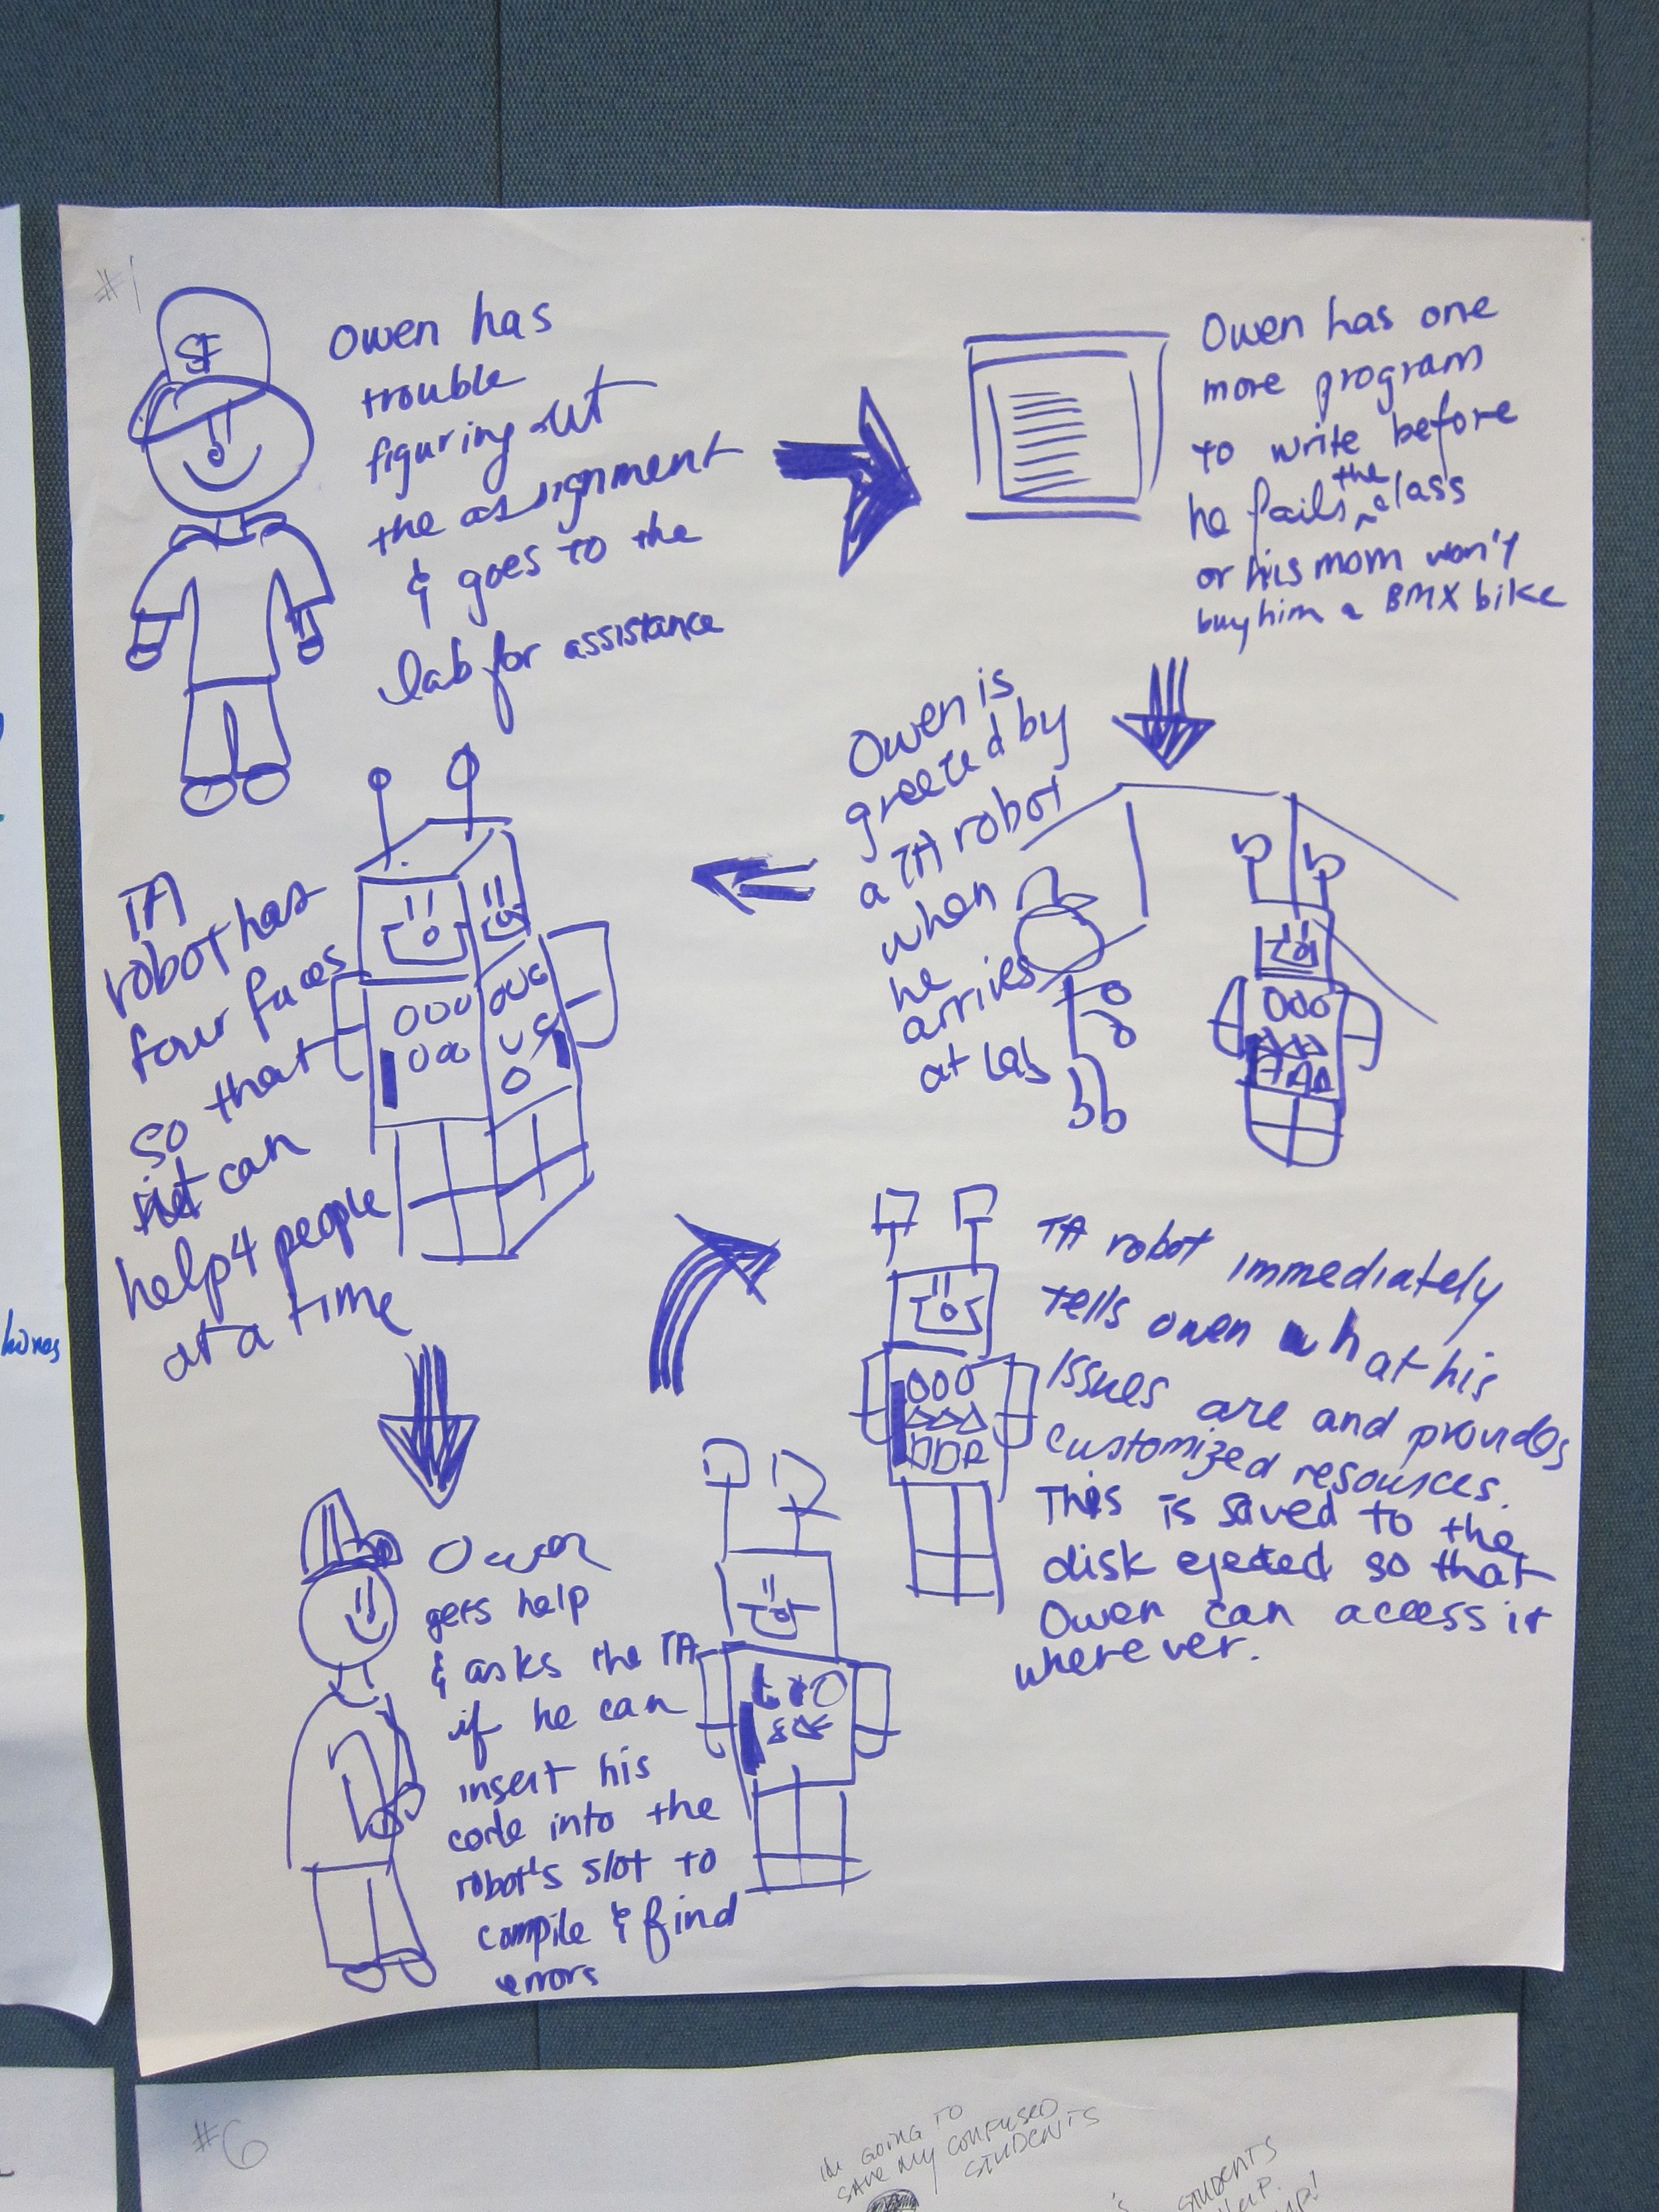 #1
SF
Owen has
trouble
figuring out
the assignment
& goes to the
lab for assistance
Owen has one
more program
to write before
he fails the class
or his mom won't
buy him a BMX bike
Owen is
greeted by
a TA robot
when
he
arrives
at Lab
TA
robot has
four faces
so that
it can
help 4 people
at a time
Owen
gets help
& asks the TA
if he can
insert his
code into the
robot's slot to
compile & find
errors
TA robot immediately
tells owen what his
issues are and provides
customized resources.
This is saved to the
disk ejected so that
Owen can access it
wherever.
#6
I'M GOING TO
SAVE MY CONFUSED
STUDENTS
STUDENTS